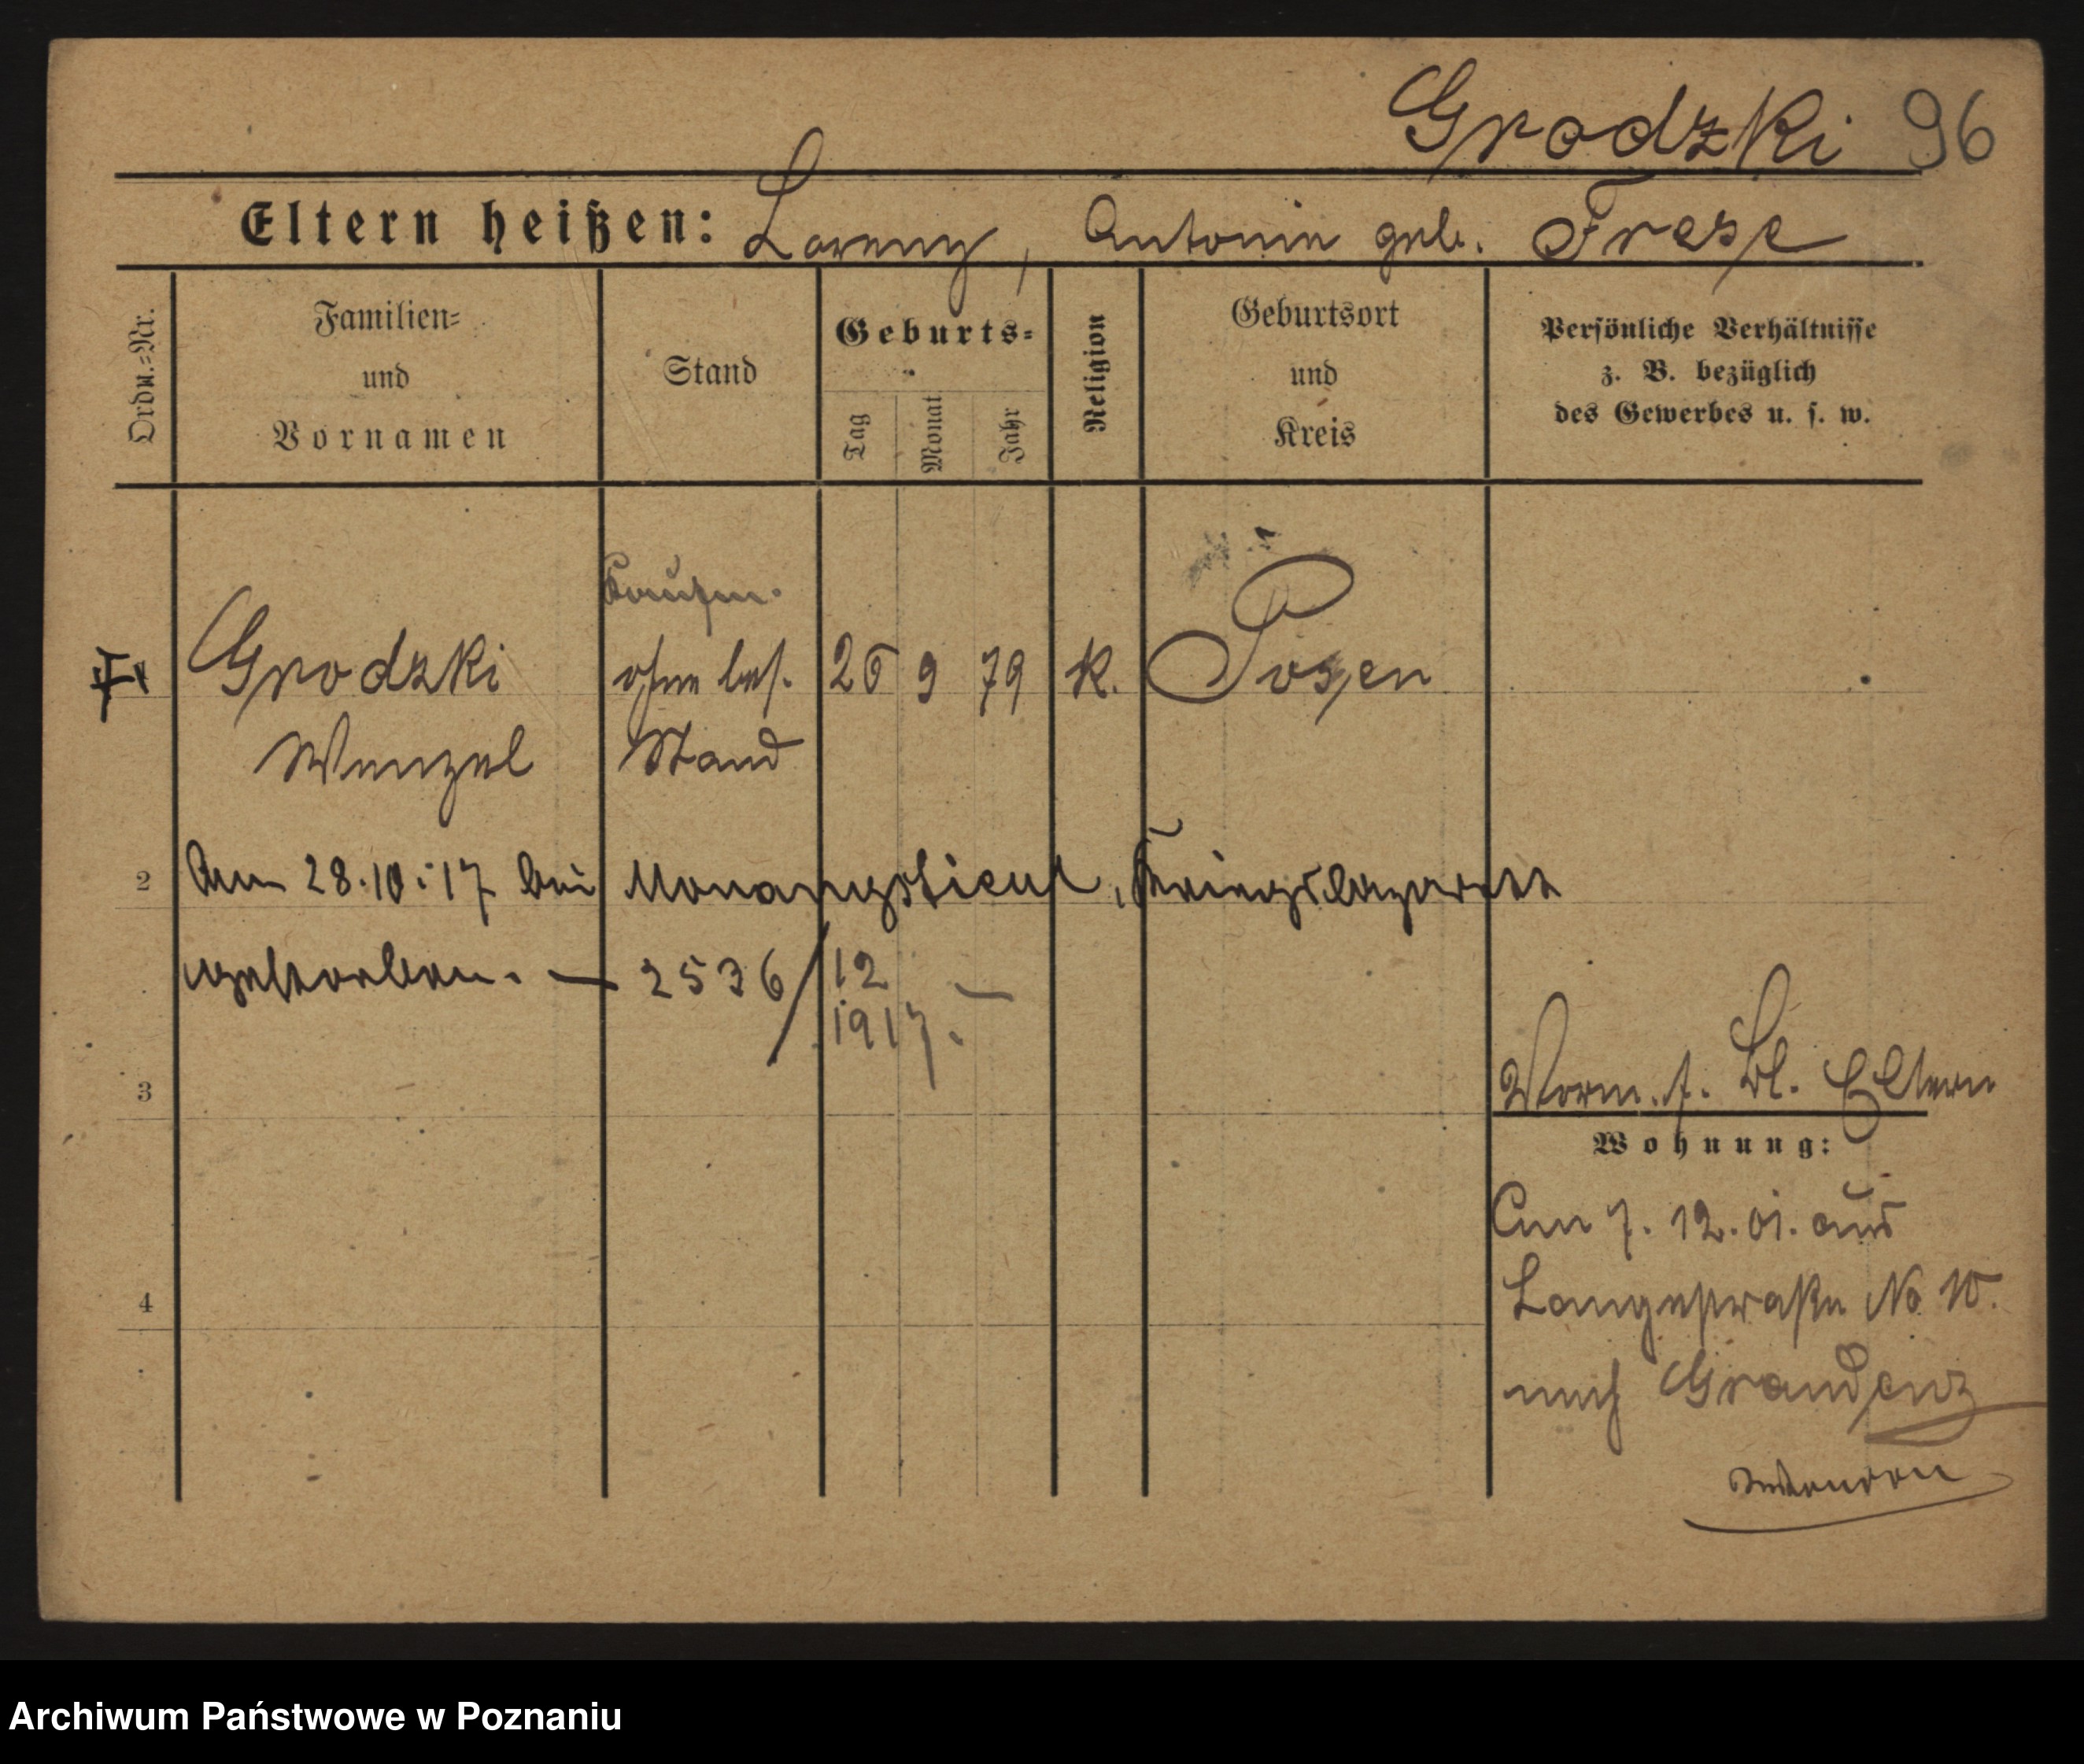 Grodzki 96
Eltern heißen: Lorenz, Antonie geb. Frese
Ordn.-Nr.
Familien-
und
Vornamen
Stand
Geburts-
Tag
Monat
Jahr
Religion
Geburtsort
und
Kreis
Persönliche Verhältnisse
z. B. bezüglich
des Gewerbes u. s. w.
Kaufm.
Grodzki ohne bes. 26 9 79 K. Posen
Wenzel Stand
2 Am 28.10.17 bei , Kriegslazarett
gestorben. — 2536/12
1917. —
3
Eltern
Wohnung:
Am 7. 12. 01. aus
Langestraße No 10.
nach Graudenz
4
Archiwum Państwowe w Poznaniu